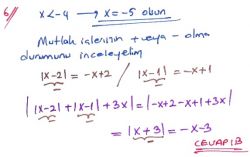 6) x<-4 → x=-5 olsun
Mutlak işlerinin + veya - olma
durumunu inceleyelim
|x-2| = -x+2 / |x-1| = -x+1
||x-2|+|x-1|+3x| = |-x+2-x+1+3x|
= |x+3| = -x-3
CEVAP: B